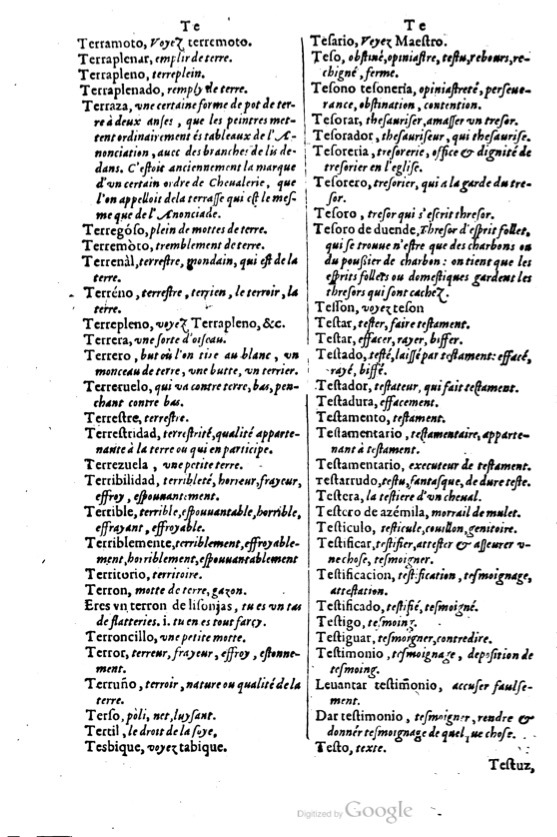 Te
Terramoto, Voyez terremoto.
Terraplenar, emplir de terre.
Terrapleno, terreplein.
Terraplenado, remply de terre.
Terraza, vne certaine forme de pot de ter-
re à deux anses, que les peintres met-
tent ordinairement és tableaux de l'A-
nonciation, auec des branches de lis de-
dans. C'estoit anciennement la marque
d'vn certain ordre de Cheualerie, que
l'on appelloit dela terrasse qui est le mes-
me que de l'Anonciade.
Terregóso, plein de mottes de terre.
Terremòto, tremblement de terre.
Terrenàl, terrestre, mondain, qui est de la
terre.
Terréno, terrestre, terrien, le terroir, la
terre.
Terrepleno, voyez Terrapleno, &c.
Terrera, vne sorte d'oiseau.
Terrero, but où l'on tire au blanc, vn
monceau de terre, vne butte, vn terrier.
Terreruelo, qui va contre terre, bas, pen-
chant contre bas.
Terrestre, terrestre.
Terrestridad, terrestrité, qualité apparte-
nante à la terre ou qui en participe.
Terrezuela, vne petite terre.
Terribilidad, terribleté, horreur, frayeur,
effroy, espouuantement.
Terrible, terrible, espouuantable, horrible,
effrayant, effroyable.
Terriblemente, terriblement, effroyable-
ment, horriblement, espouuantablement
Territorio, territoire.
Terron, motte de terre, gazon.
Eres vn terron de lisonjas, tu es vn tas
de flatteries. i. tu en es tout farcy.
Terroncillo, vne petite motte.
Terror, terreur, frayeur, effroy, estonne-
ment.
Terruño, terroir, nature ou qualité de la
terre.
Terso, poli, net, luysant.
Tertil, le droit de la soye.
Tesbique, voyez tabique.
Te
Tesario, Voyez Maestro.
Teso, obstiné, opiniastre, testu, rebours, re-
chigné, ferme.
Tesono tesoneria, opiniastreté, perseue-
rance, obstination, contention.
Tesorar, thesauriser, amasser vn tresor.
Tesorador, thesauriseur, qui thesaurise.
Tesoreria, tresorerie, office & dignité de
tresorier en l'eglise.
Tesorero, tresorier, qui a la garde du tre-
sor.
Tesoro, tresor qui s'escrit thresor.
Tesoro de duende, Thresor d'esprit follet,
qui se trouue n'estre que des charbons ou
du poussier de charbon: on tient que les
esprits follets ou domestiques gardent les
thresors qui sont cachez.
Tesson, voyez teson
Testar, tester, faire testament.
Testar, effacer, rayer, biffer.
Testado, testé, laissé par testament: effacé,
rayé, biffé.
Testador, testateur, qui fait testament.
Testadura, effacement.
Testamento, testament.
Testamentario, testamentaire, apparte-
nant à testament.
Testamentario, executeur de testament.
Testarrudo, testu, fantasque, de dure teste.
Testera, la testiere d'vn cheual.
Testero de azémila, morrail de mulet.
Testiculo, testicule, couillon, genitoire.
Testificar, testifier, attester & asseurer v-
ne chose, tesmoigner.
Testificacion, testification, tesmoignage,
attestation.
Testificado, testifié, tesmoigné.
Testigo, tesmoing.
Testiguar, tesmoigner, contredire.
Testimonio, tesmoignage, deposition de
tesmoing.
Leuantar testimonio, accuser faulse-
ment.
Dar testimonio, tesmoigner, rendre &
donner tesmoignage de quelque chose.
Testo, texte.
Testuz,
Digitized by Google